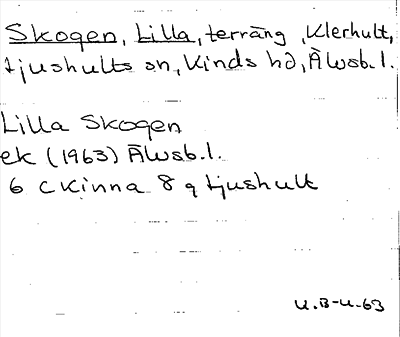 Skogen, Lilla, terräng, Klerhult,
Ljushults sn, Kinds hd, Älvsb.l.
Lilla Skogen
ek (1963) Älvsb.l.
6 C Kinna 8 g Ljushult
U.B-U.63